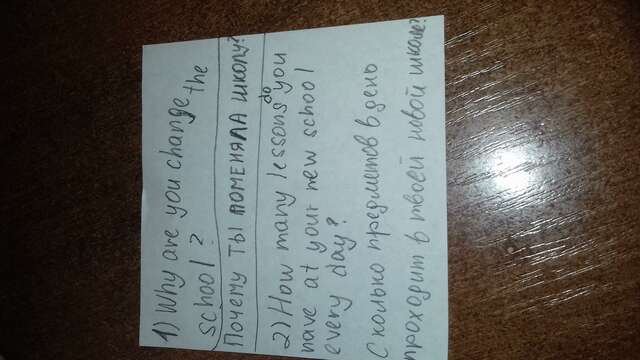 1) Why are you change the
school?
Почему ты поменяла школу?
2) How many lessons do you
have at your new school
every day?
Сколько предметов в день
проходит в твоей новой школе?